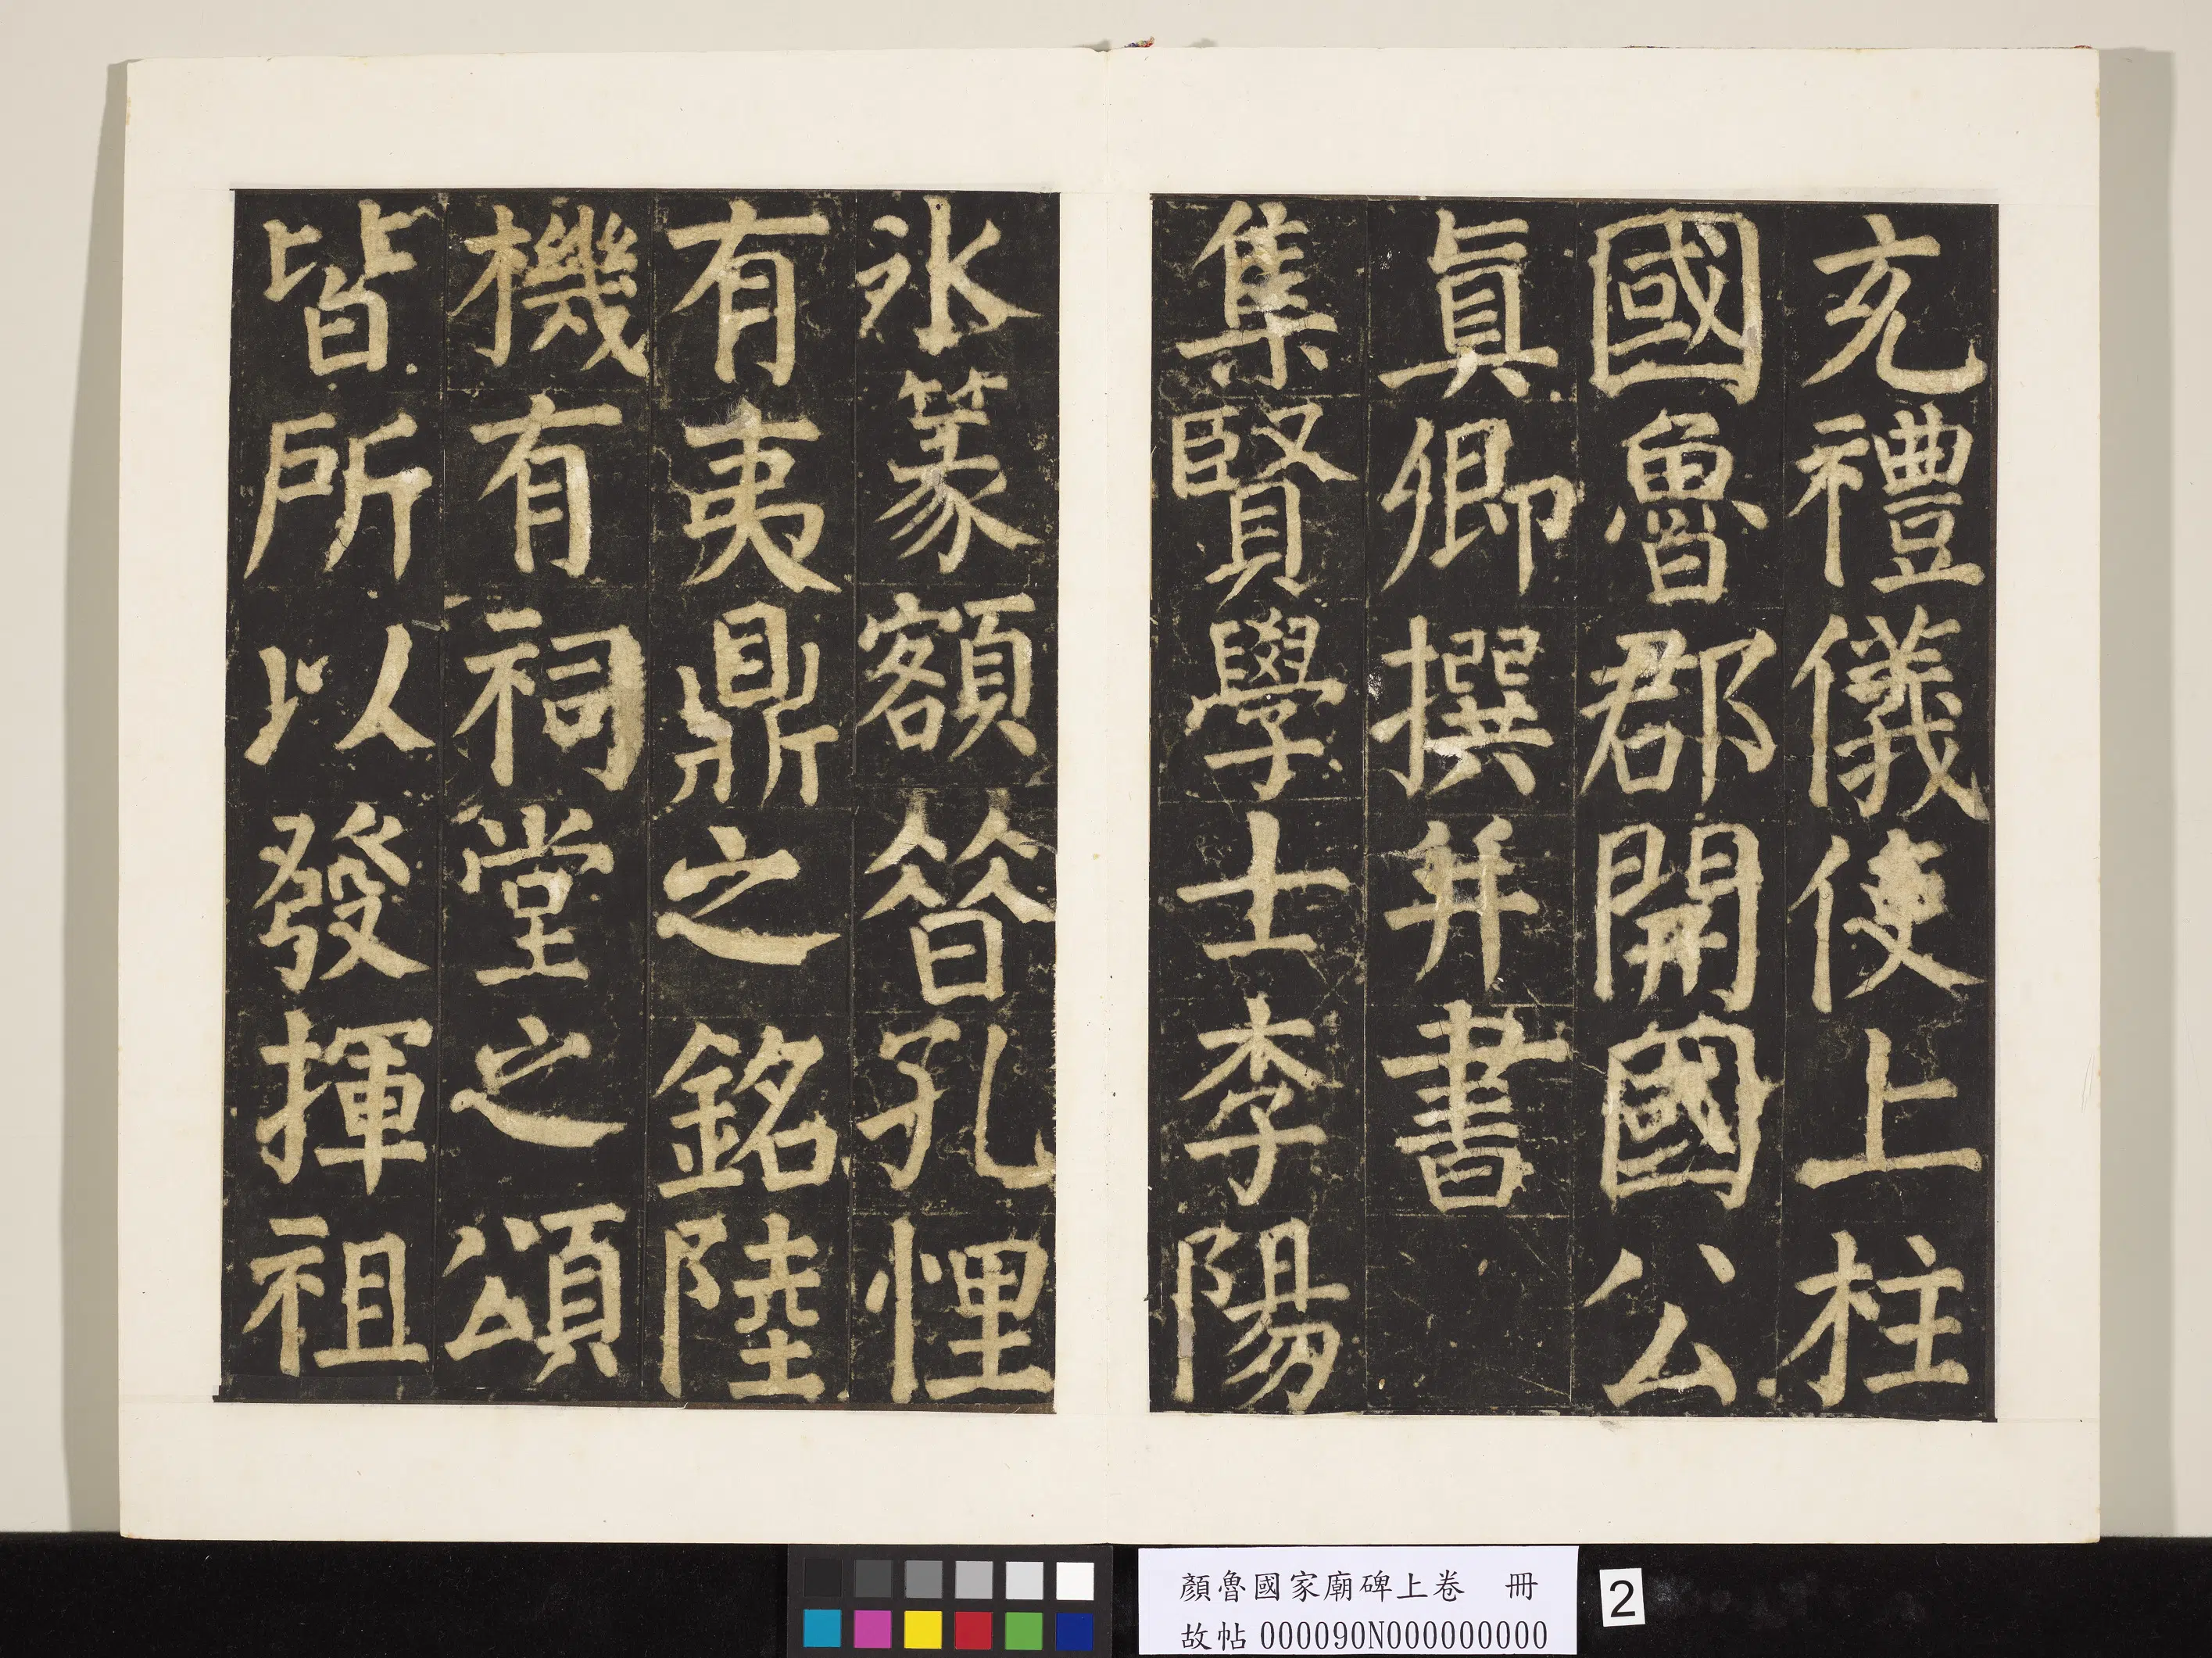 充禮儀使上柱
國魯郡開國公
眞卿撰并書
集賢學士李陽
冰篆額晉孔悝
有夷鼎之銘陸
機有祠堂之頌
皆所以發揮祖
顏魯國家廟碑上卷 冊
故帖000090N000000000
2